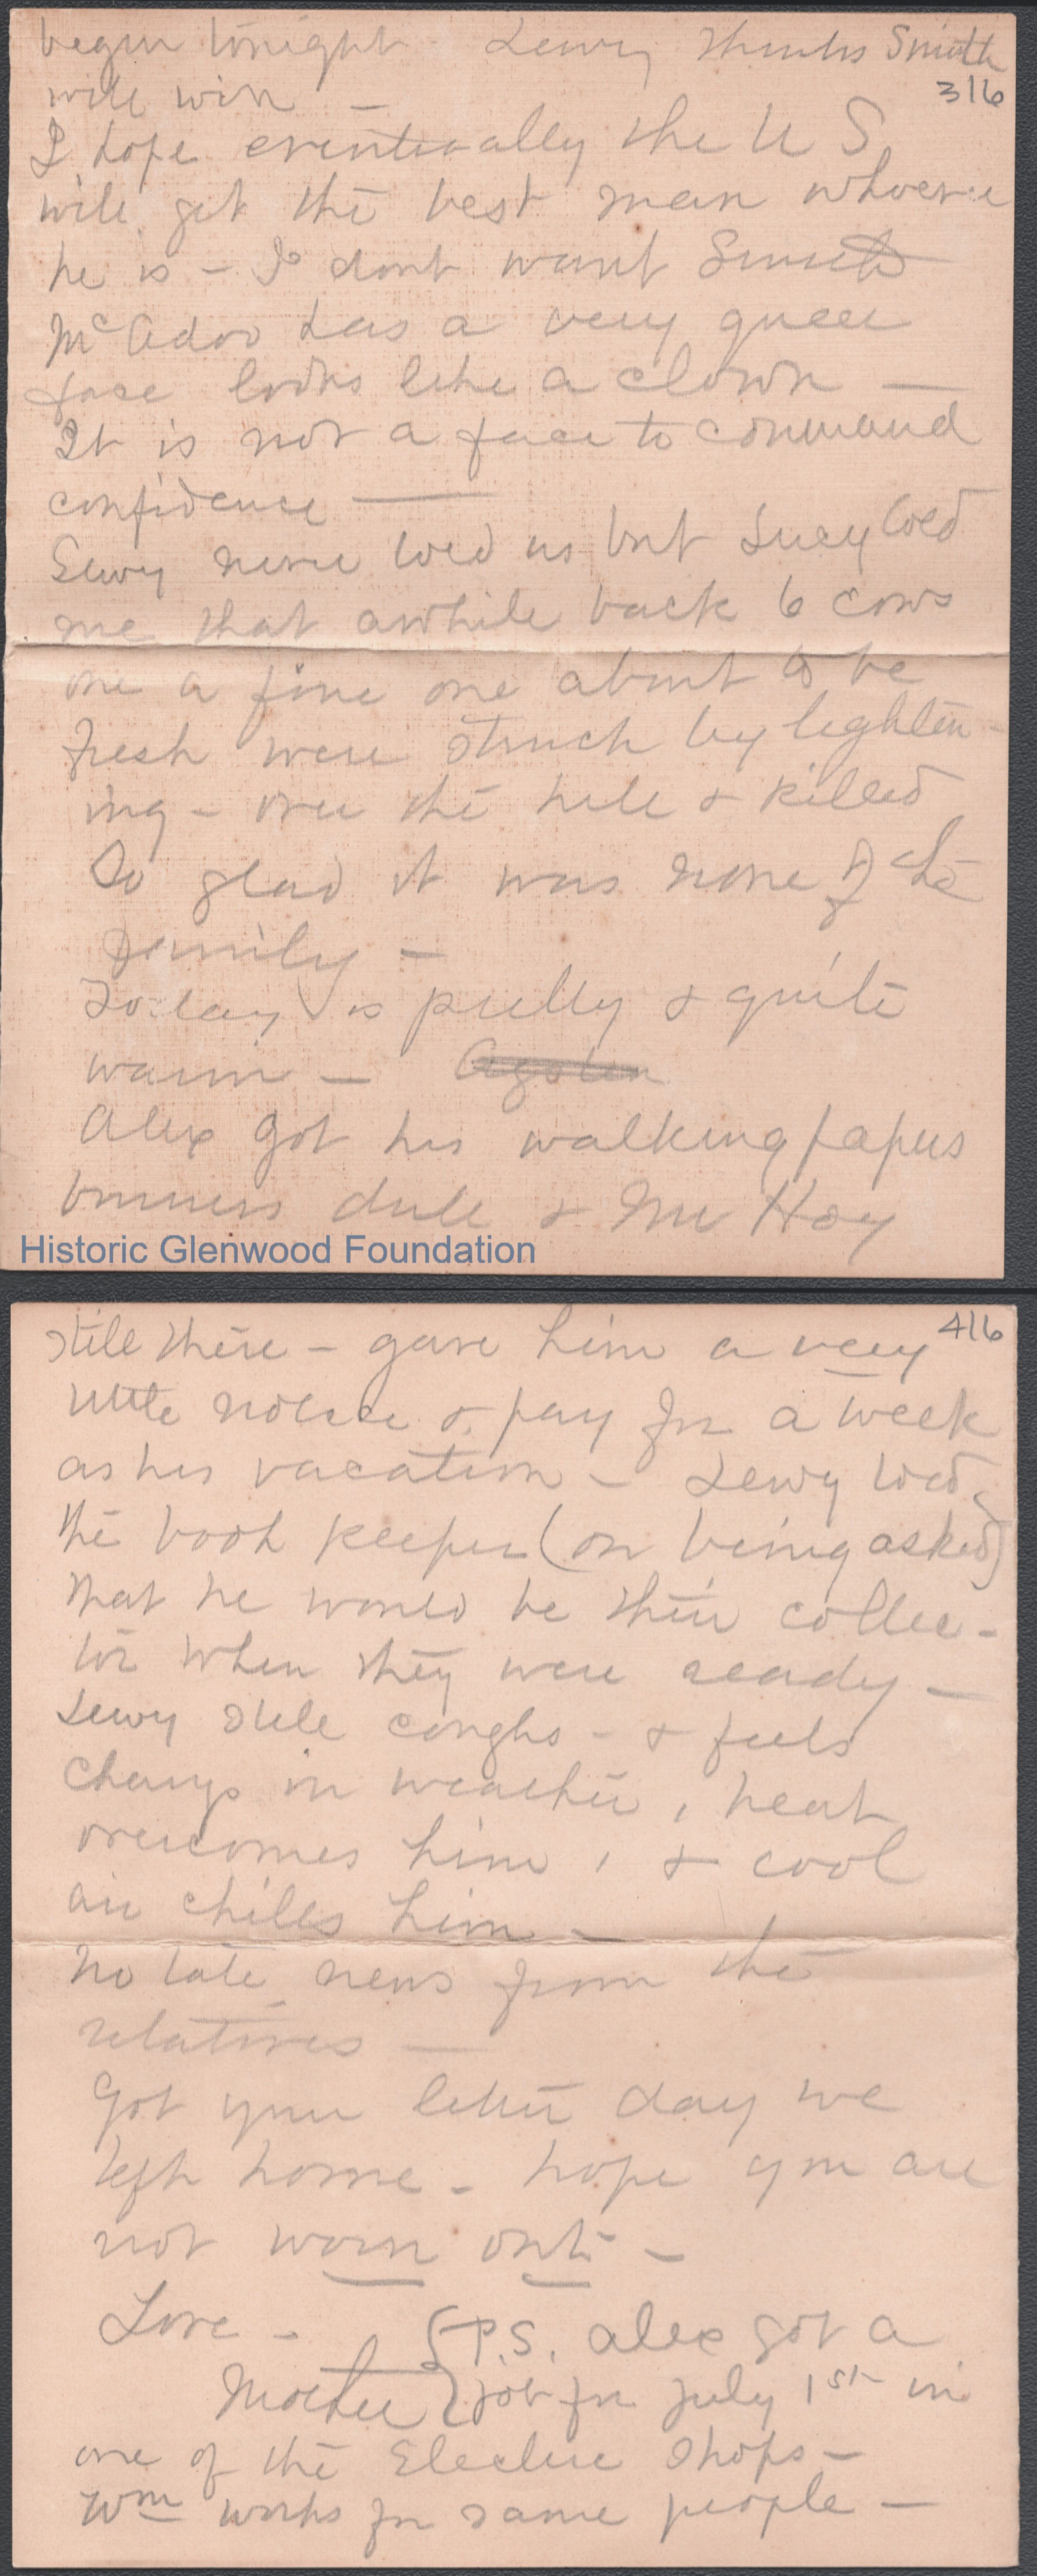 begin tonight - Lewy thinks Smith
3|6
will win -
I hope eventually the U S
will get the best man whoever
he is - I dont want Smith
McAdoo has a very queer
face looks like a clown -
It is not a face to command
confidence -
Lewy never told us but Lucy told
me that awhile back 6 cows
one a fine one about to be
fresh were struck by lighten-
ing - over the hill & killed
So glad it was none of the
family -
Today is pretty & quite
warm -
Alex got his walking papers
business dull & Mr Hoy
Historic Glenwood Foundation
still there - gave him a very
4|6
little notice & pay for a week
as his vacation - Lewy told
the book keeper (on being asked)
that he would be their collec-
tor when they were ready -
Lewy still coughs - & feels
changes in weather, heat
overcomes him, & cool
air chills him -
No late news from the
relatives -
Got your letter day we
left home - hope you are
not worn out -
Love -
Mother
{P.S. Alex got a
job for July 1st in
one of the Electric shops -
Wm works for same people -